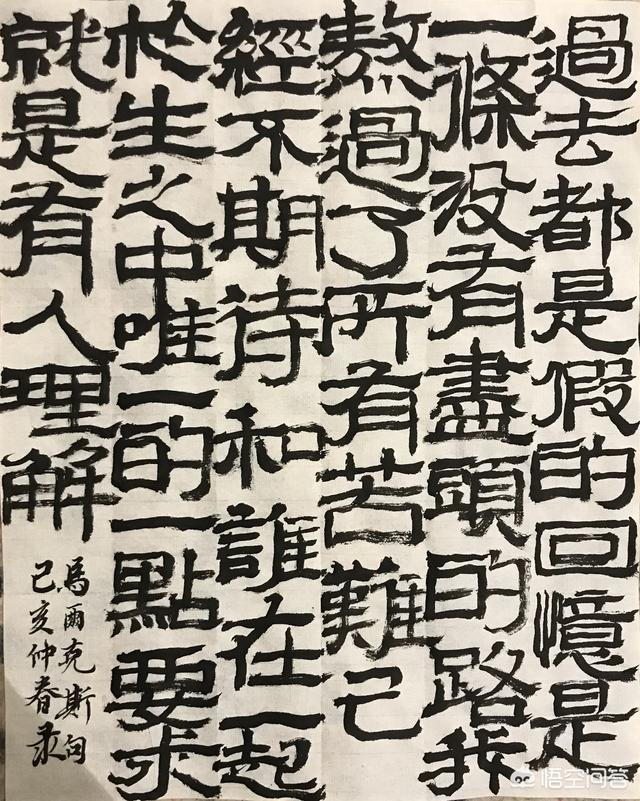 過去都是假的回憶是
一條没有盡頭的路我
熬過了所有苦難已
經不期待和誰在一起
於生之中唯一的一點要求
就是有人理解
馬爾克斯句
己亥仲春录
悟空问答